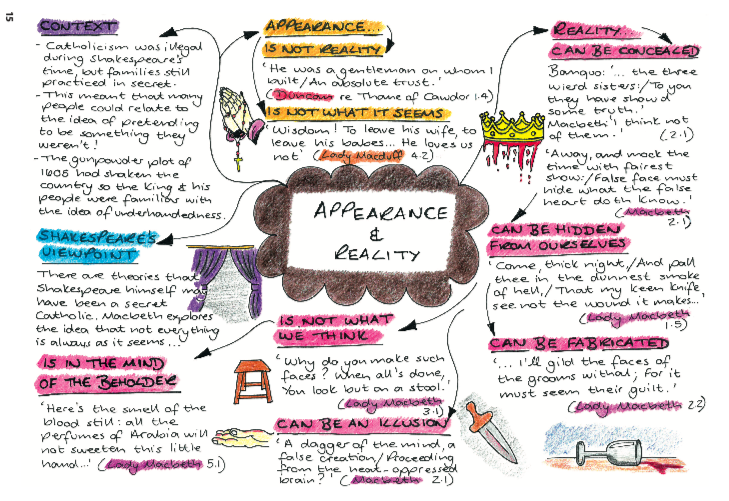 15
CONTEXT
- Catholicism was illegal
during Shakespeare's
time, but families still
practiced in secret.
- This meant that many
people could relate to
the idea of pretending
to be something they
weren't!
- The gunpowder plot of
1605 had shaken the
country so the King & his
people were familiar with
the idea of underhandedness.
SHAKESPEARE'S
VIEWPOINT
There are theories that
Shakespeare himself may
have been a secret
Catholic. Macbeth explores
the idea that not everything
is always as it seems...
IS IN THE MIND
OF THE BEHOLDER
'Here's the smell of the
blood still: all the
perfumes of Arabia will
not sweeten this little
hand...' (Lady Macbeth 5.1)
APPEARANCE...
IS NOT REALITY
'He was a gentleman on whom I
built/An absolute trust.'
(Duncan re Thane of Cawdor 1.4)
IS NOT WHAT IT SEEMS
'Wisdom! To leave his wife, to
leave his babes... He loves us
not' (Lady Macduff 4.2)
APPEARANCE
&
REALITY
IS NOT WHAT
WE THINK
'Why do you make such
faces? When all's done,
You look but on a stool.'
(Lady Macbeth
3.1)
CAN BE AN ILLUSION
'A dagger of the mind, a
false creation/Proceeding
from the heat-oppressed
brain?' (Macbeth 2.1)
REALITY...
CAN BE CONCEALED
Banquo: '... the three
wierd sisters:/To you
they have show'd
some truth.'
Macbeth: 'I think not
of them.' (2.1)
'Away, and mock the
time with fairest
show:/False face must
hide what the false
heart doth know.'
(Macbeth
2.1)
CAN BE HIDDEN
FROM OURSELVES
'Come, thick night,/And pall
thee in the dunnest smoke
of hell,/That my keen knife
see not the wound it makes...'
(Lady Macbeth
1.5)
CAN BE FABRICATED
'... I'll gild the faces of
the grooms withal; For it
must seem their guilt.'
(Lady Macbeth 2.2)